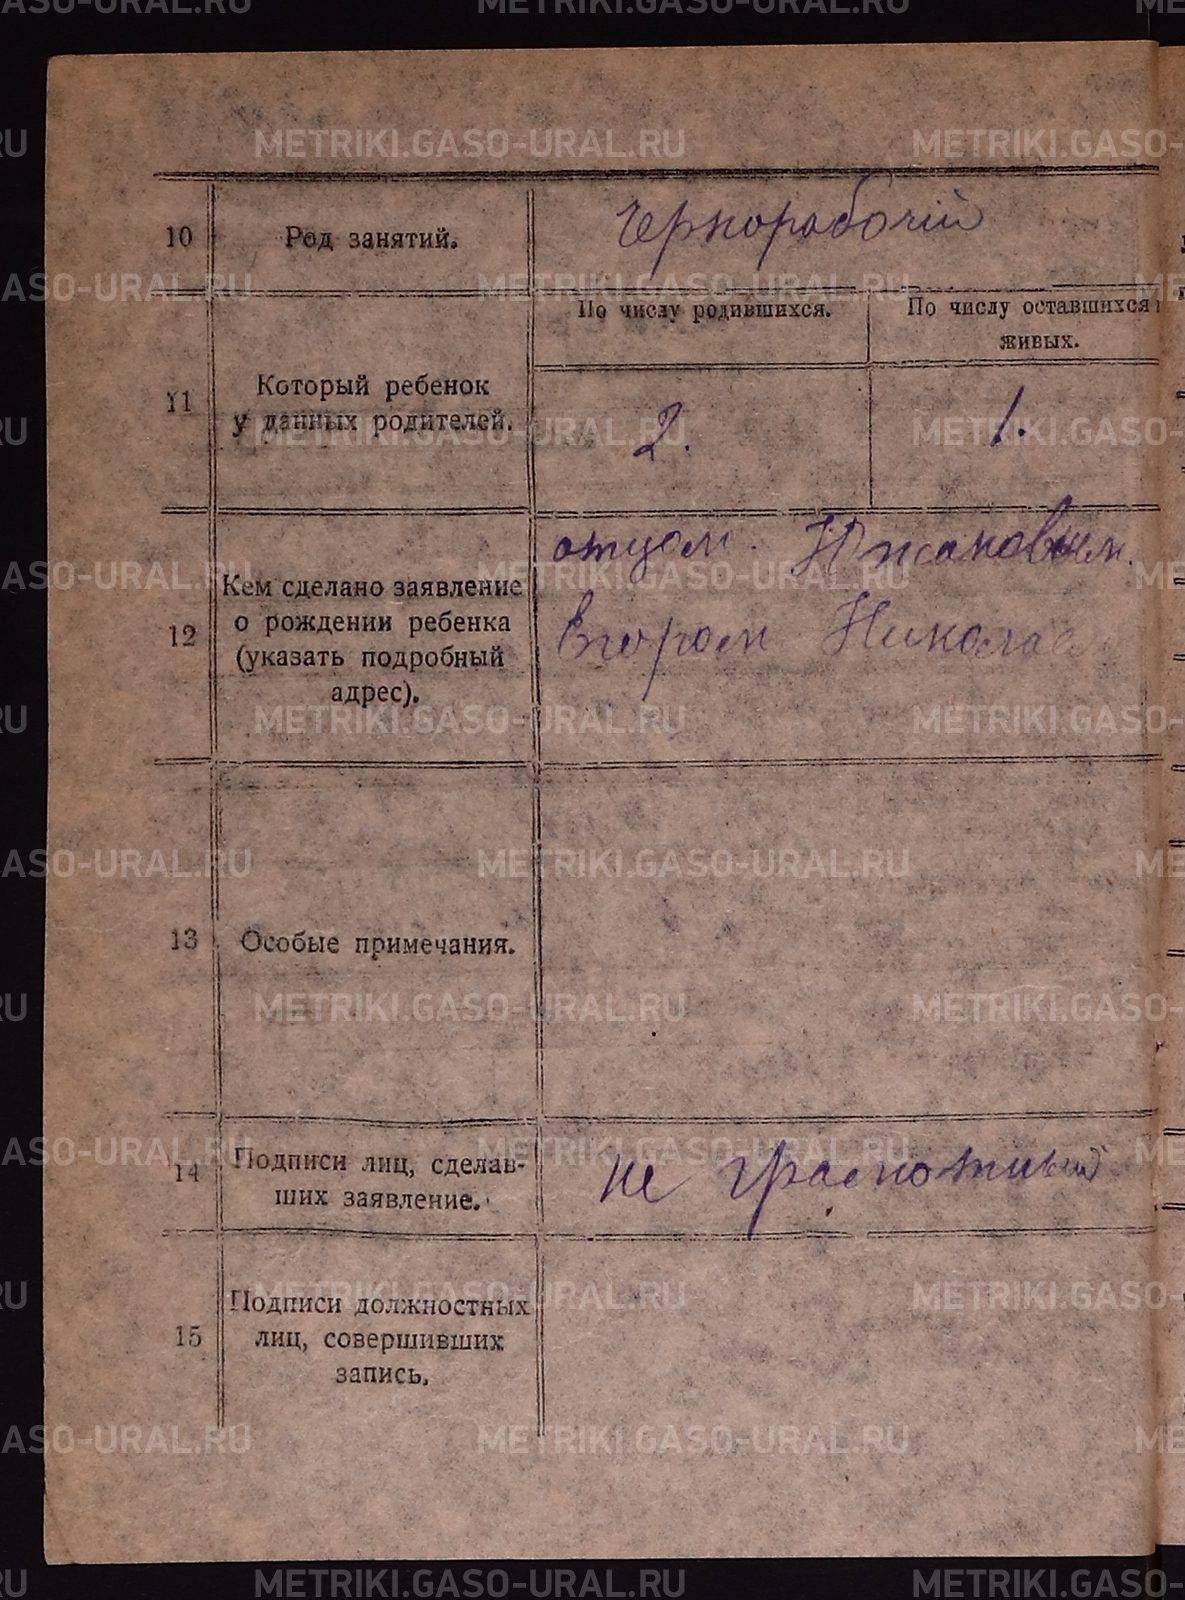 10 Род занятий. Чернорабочий
По числу родившихся. По числу оставшихся
живых.
11 Который ребенок
у данных родителей.
2. 1.
12 Кем сделано заявление
о рождении ребенка
(указать подробный
адрес).
отцом Южаковым.
Егором Николаев
13 Особые примечания.
14 Подписи лиц, сделав-
ших заявление.
не грамотный
15 Подписи должностных
лиц, совершивших
запись.
METRIKI.GASO-URAL.RU